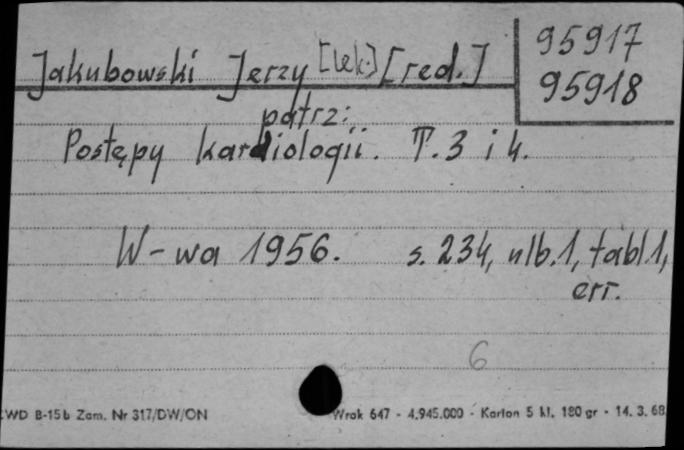 95917
Jakubowski Jerzy [lek.] [red.]
95918
patrz:
Postępy kardiologii. T. 3 i 4.
W-wa 1956. s. 234, nlb. 1, tabl. 1,
err.
6
WD B-15b Zam. Nr 317/DW/ON Wrak 647 - 4.945.000 - Karton 5 kl. 180 gr - 14. 3. 68